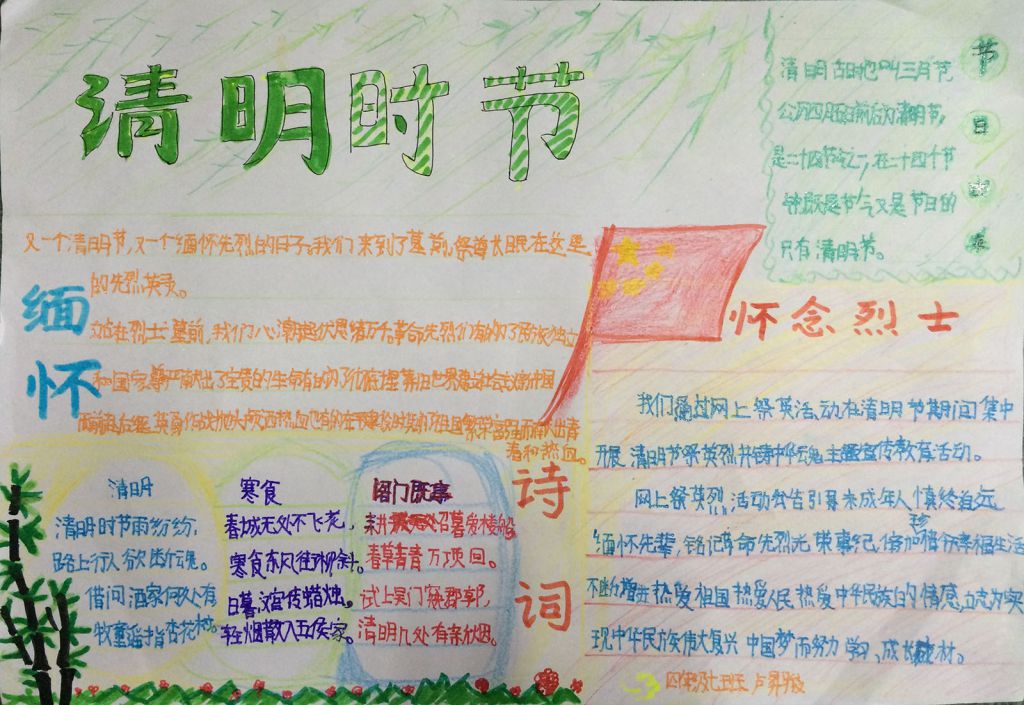 清明时节
节
日
清明古时也叫三月节
公历四月五日前后为清明节，
是二十四节气之一，在二十四个节
既是节气又是节日的
只有清明节。
又一个清明节，又一个缅怀先烈的日子。我们来到了墓前，祭奠长眠在这里
的先烈英灵。
缅
怀
站在烈士墓前，我们心潮起伏思绪万千革命先烈们有的为了民族独立
和国家尊严献出了宝贵的生命有的为了
青
春和热血。
怀念烈士
我们通过网上祭英活动在清明节期间集中
开展清明节祭英烈共铸中华魂主题宣传教育活动。
网上祭英烈活动公告引导未成年人慎终追远
缅怀先辈，铭记革命先烈光荣事纪，倍加珍惜幸福生活
不断增进热爱祖国热爱人民热爱中华民族的情感，立志为实
现中华民族伟大复兴中国梦而努力学习、成长
诗
词
清明
清明时节雨纷纷，
路上行人欲断魂。
借问酒家何处有
牧童遥指杏花村。
寒食
春城无处不飞花，
寒食东风御柳斜。
日暮汉宫传蜡烛，
轻烟散入五侯家。
阊门即事
耕 召募爱楼船
春草青青万顷田。
试上吴门窥郡郭，
清明几处有新烟。
四年级七班 卢昇